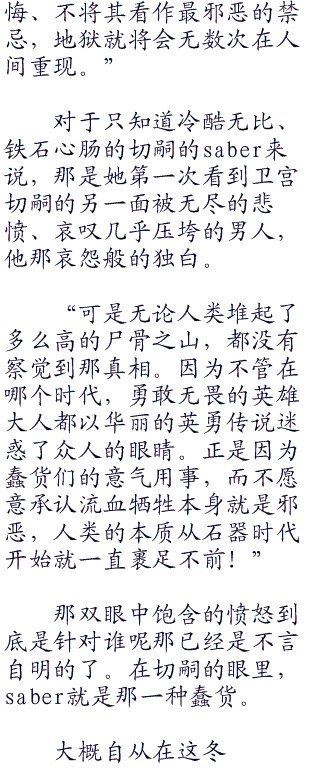 悔、不将其看作最邪恶的禁
忌，地狱就将会无数次在人
间重现。”
对于只知道冷酷无比、
铁石心肠的切嗣的saber来
说，那是她第一次看到卫宫
切嗣的另一面被无尽的悲
愤、哀叹几乎压垮的男人，
他那哀怨般的独白。
“可是无论人类堆起了
多么高的尸骨之山，都没有
察觉到那真相。因为不管在
哪个时代，勇敢无畏的英雄
大人都以华丽的英勇传说迷
惑了众人的眼睛。正是因为
蠢货们的意气用事，而不愿
意承认流血牺牲本身就是邪
恶，人类的本质从石器时代
开始就一直裹足不前！”
那双眼中饱含的愤怒到
底是针对谁呢那已经是不言
自明的了。在切嗣的眼里，
saber就是那一种蠢货。
大概自从在这冬